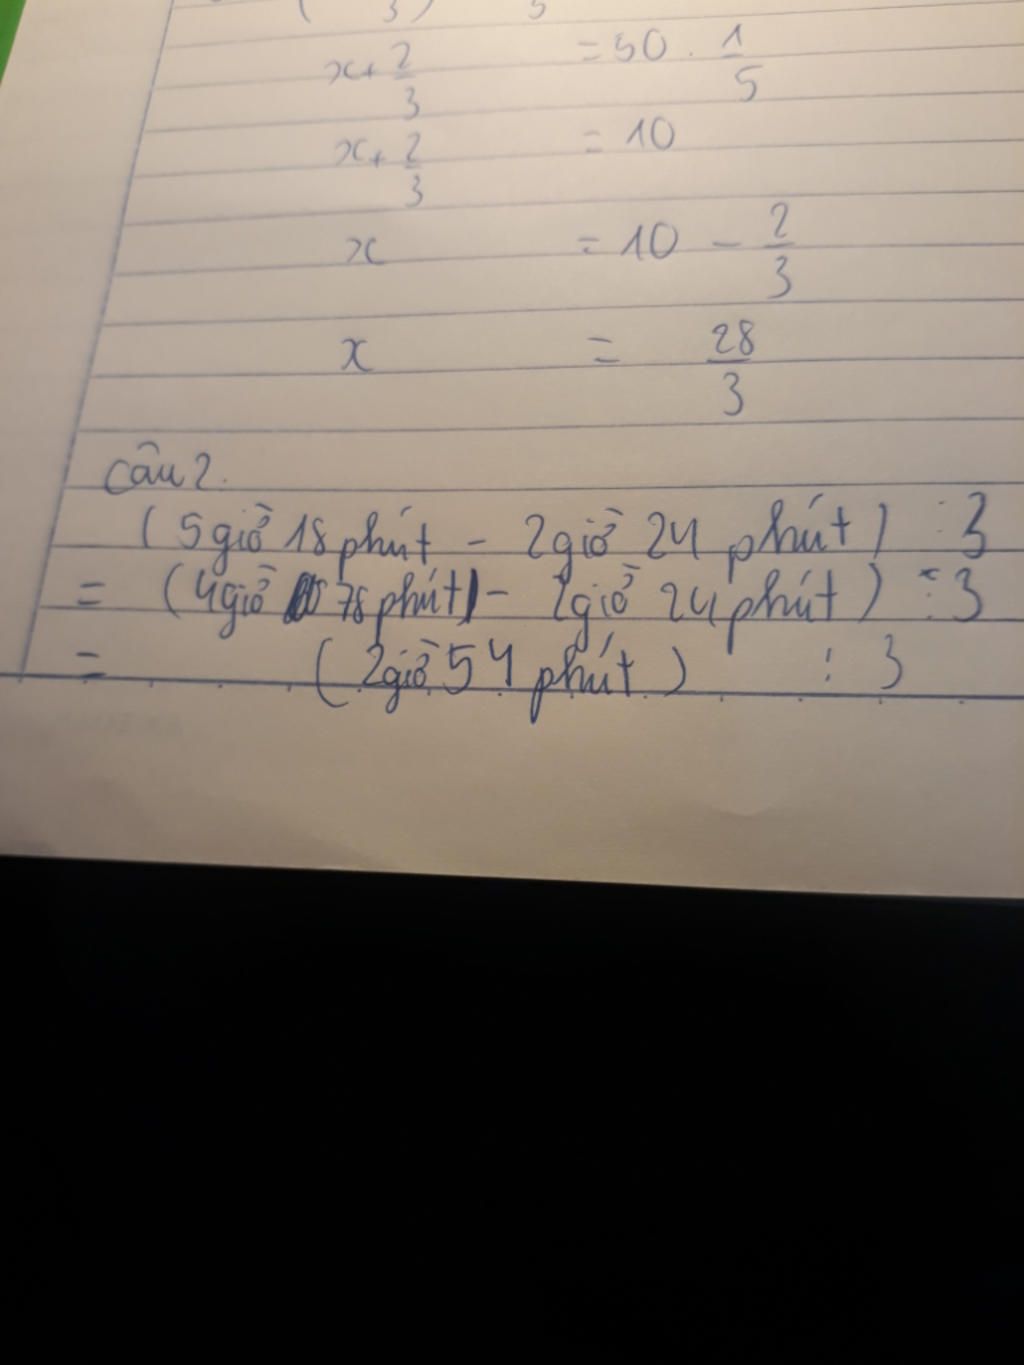 ( 3 ) 5
x + 2/3 = 50 . 1/5
x + 2/3 = 10
x = 10 - 2/3
x = 28/3
Câu 2.
( 5 giờ 18 phút - 2 giờ 24 phút ) : 3
= ( 4 giờ 78 phút ) - 2 giờ 24 phút ) : 3
= ( 2 giờ 54 phút ) : 3